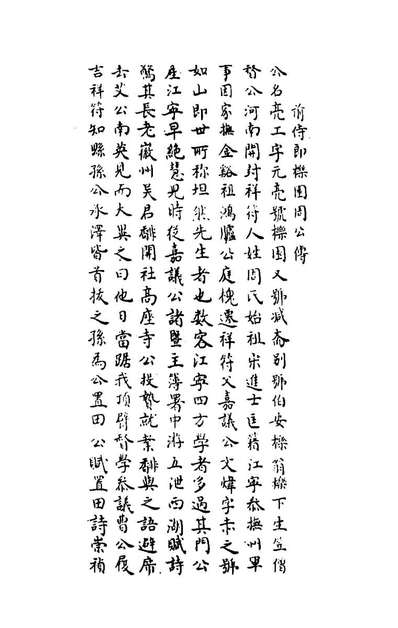 前侍郎櫟園周公傳
公名亮工字元亮號櫟園又號減斋别號伯安櫟翁櫟下生笠僧
督公河南開封祥符人姓周氏始祖宋進士匡籍江寧叅撫州軍
事因家撫金谿祖鴻臚公庭槐遷祥符父嘉議公文煒字赤之號
如山即世所称坦然先生者也数客江寧四方学者多過其門公
產江寧早絶慧兒時從嘉議公諸暨主簿署中游五泄西湖賦詩
驚其長老徽州吴君開社高座寺公投贄就業與之語避席
去艾公南英見而大異之曰他日當踞我頂督學叅議曹公履
吉祥符知縣孫公承澤皆首拔之孫為公置田公賦置田詩崇禎